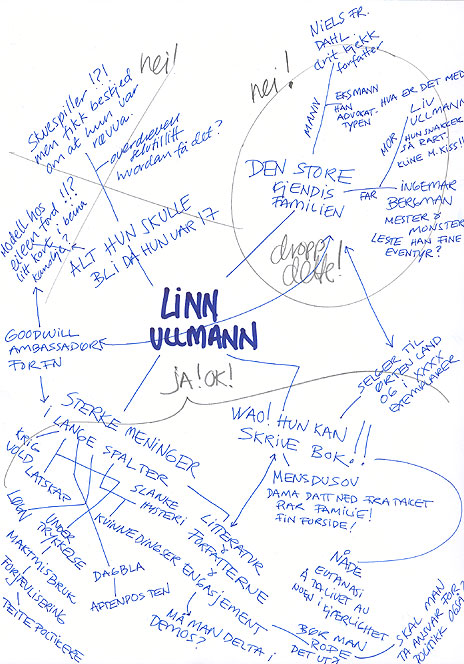 SKUESPILLER !?!
MEN FIKK BESKJED
OM AT HUN VAR
RÆVVA.
nei!
overdreven
selvtillit
hvordan få det?
MODELL HOS
EILEEN FORD !!?
LITT KORT I BEINA
KANDIS?
ALT HUN SKULLE
BLI DA HUN VAR 17
nei!
NIELS FR.
DAHL
drit kjekk
forfatter
MANN
EKSMANN
HAN
ADVOKAT-
TYPEN
HVA ER DET MED
LIV
ULLMANN
HUN SNAKKER
SÅ RART.
KLINE M. KISS!!
MOR
DEN STORE
KJENDIS
FAMILIEN
FAR
INGEMAR
BERGMAN
MESTER &
MONSTER
LESTE HAN FINE
EVENTYR?
dropp
dette!
LINN
ULLMANN
GOODWILL
AMBASSADØR
FOR FN
JA! OK!
SELGER TIL
ØRTEN LAND
OG I XXXX
EKSEMPLARER
STERKE MENINGER
I LANGE SPALTER
KRIG
VOLD
LATSKAP
LØGN
UNDER
TRYKKELSE
MAKTMISBRUK
FORJÆVLISERING
TEITE POLITIKERE
SLANKE
HYSTERI
KVINNEDINGSER
DAGBLA
AFTENPOSTEN
WAO! HUN KAN
SKRIVE BOK..!!
MENS DU SOV
DAMA DATT NED FRA TAKET
RAR FAMILIE!
FIN FORSIDE!
LITTERATUR
&
FORFATTERNE
&
ENGASJEMENT
MÅ MAN DELTA I
DEMOS?
BØR MAN
RØDE
DET UT?
NÅDE
EUTANASI
Å TA LIVET AV
NOEN I KJÆRLIGHET
SKAL MAN
TA ANSVAR FOR
POLITIKK OGSÅ?